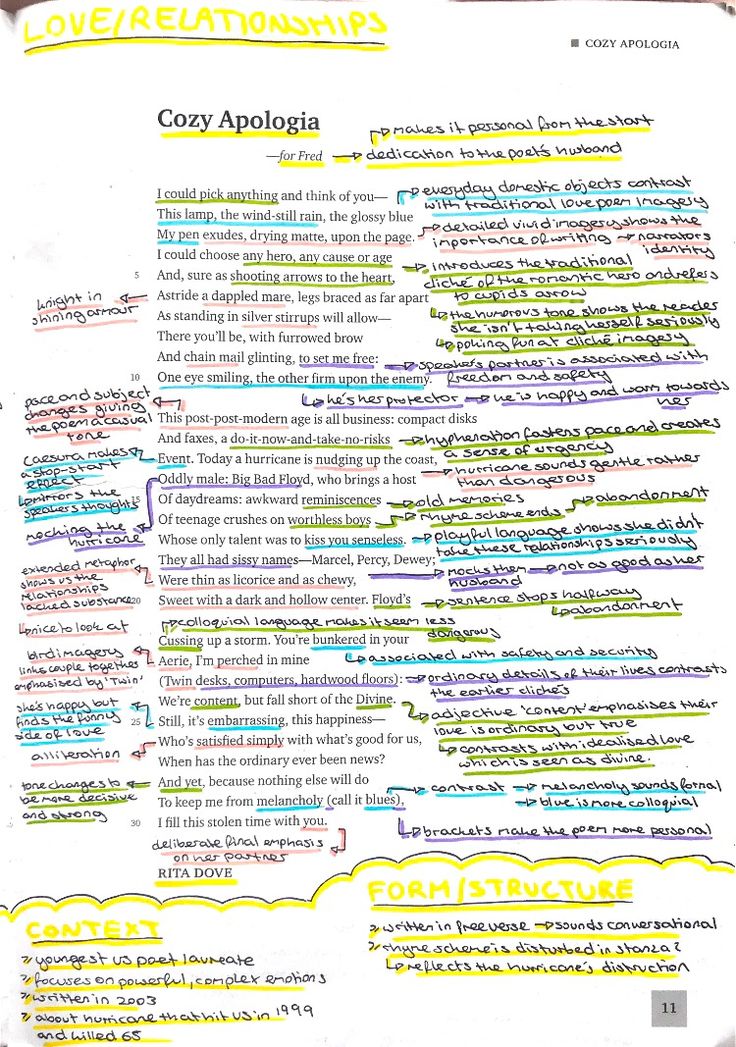 LOVE/RELATIONSHIPS
COZY APOLOGIA
Cozy Apologia
→ makes it personal from the start
—for Fred → dedication to the poet's husband
I could pick anything and think of you—
This lamp, the wind-still rain, the glossy blue
My pen exudes, drying matte, upon the page.
I could choose any hero, any cause or age
5 And, sure as shooting arrows to the heart,
Astride a dappled mare, legs braced as far apart
As standing in silver stirrups will allow—
There you'll be, with furrowed brow
And chain mail glinting, to set me free:
10 One eye smiling, the other firm upon the enemy.
→ everyday domestic objects contrast
with traditional love poem imagery
→ detailed vivid imagery shows the
importance of writing → narrators
identity
→ introduces the traditional
cliché of the romantic hero and refers
to cupids arrow
↳ the humorous tone shows the reader
she isn't taking herself seriously
↳ poking fun at cliché imagery
→ speaker's partner is associated with
freedom and safety
↳ he's her protector → he is happy and warm towards
her
knight in
shining armour
pace and subject
changes giving
the poem a casual
tone
This post-post-modern age is all business: compact disks
And faxes, a do-it-now-and-take-no-risks
Event. Today a hurricane is nudging up the coast,
Oddly male: Big Bad Floyd, who brings a host
15 Of daydreams: awkward reminiscences
Of teenage crushes on worthless boys
Whose only talent was to kiss you senseless.
They all had sissy names—Marcel, Percy, Dewey;
Were thin as licorice and as chewy,
20 Sweet with a dark and hollow center. Floyd's
→ hyphenation fastens pace and creates
a sense of urgency
→ hurricane sounds gentle rather
than dangerous
→ old memories
→ rhyme scheme ends → abandonment
→ playful language shows she didnt
take these relationships seriously
→ mocks them → not as good as her
husband
→ sentence stops halfway
↳ abandonment
caesura makes
a stop-start
effect
↳ mirrors the
speakers thoughts
mocking the
hurricane
extended metaphor
shows us the
relationships
lacked substance
↳ nice to look at
→ colloquial language makes it seem less
dangerous
Cussing up a storm. You're bunkered in your
Aerie, I'm perched in mine
(Twin desks, computers, hardwood floors):
We're content, but fall short of the Divine.
25 Still, it's embarrassing, this happiness—
Who's satisfied simply with what's good for us,
When has the ordinary ever been news?
And yet, because nothing else will do
To keep me from melancholy (call it blues),
30 I fill this stolen time with you.
→ associated with safety and security
→ ordinary details of their lives contrasts
the earlier cliché's
→ adjective 'content' emphasises their
love is ordinary but true
↳ contrasts with idealised love
which is seen as divine.
→ contrast → melancholy sounds formal
→ blue is more colloquial
↳ brackets make the poem more personal
bird imagery
links couple together
emphasised by 'Twin'
she's happy but
finds the funny
side of love
alliteration
tone changes to
be more decisive
and strong
deliberate final emphasis
on her partner
RITA DOVE
CONTEXT
» youngest us poet laureate
» focuses on powerful, complex emotions
» written in 2003
» about hurricane that hit us in 1999
and killed 65
FORM/STRUCTURE
» written in free verse → sounds conversational
» rhyme scheme is disturbed in stanza 2
↳ reflects the hurricane's distruction
11